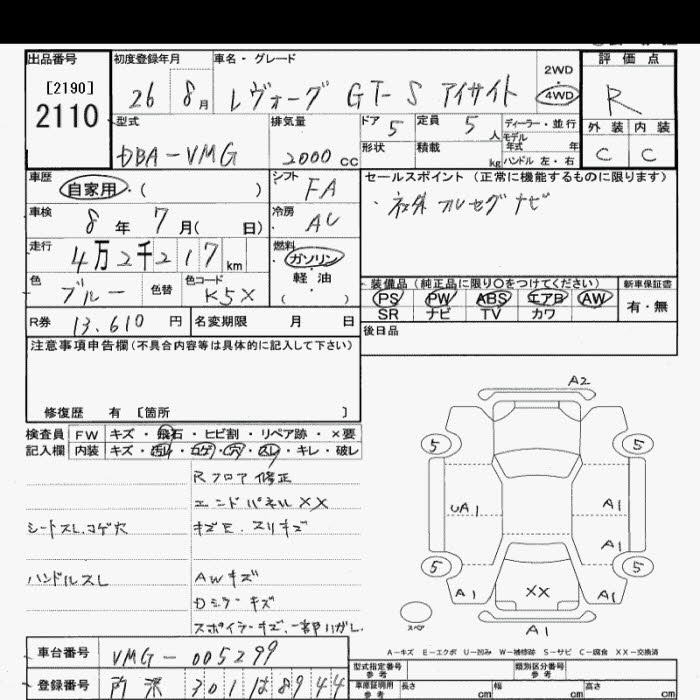 出品番号 初度登録年月 車名・グレード 評価点
[2190] 2110
26 8月 レヴォーグ GT-S アイサイト 2WD 4WD R
型式 排気量 ドア 5 定員 5人 ディーラー・並行 外装 内装
DBA-VMG 2000 cc 形状 積載 kg モデル年式 年 ハンドル 左・右 C C
車歴 シフト セールスポイント (正常に機能するものに限ります)
自家用・( ) FA ・社外フルセグナビ
車検 冷房
8年 7月( 日) AC
走行 燃料
4万2千217km ガソリン
色 色替 色コード 軽油
ブルー K5X ( )
装備品 (純正品に限り○をつけてください) 新車保証書
PS PW ABS エアB AW 有・無
SR ナビ TV カワ
R券 13,610円 名変期限 月 日 後日品
注意事項申告欄(不具合内容等は具体的に記入して下さい)
修復歴 有 [箇所 ]
検査員 FW キズ・飛石・ヒビ割・リペア跡・×要
記入欄 内装 キズ・汚れ・コゲ・穴・スレ・キレ・破レ
Rフロア修正
エンドパネルXX
シートスレ.コゲ穴 キズE.スリキズ
ハンドルスレ AWキズ
スポイラーキズ、一部ハガレ
A2
5 5
UA1 A1
A1
5 5
A1 XX A1
スペア A1
A-キズ E-エクボ U-凹み W-補修跡 S-サビ C-腐食 XX-交換済
車台番号 VMG-005299
登録番号 301 8944
型式指定番号 参考 類別区分番号 参考
車庫証明用 参考 長さ cm 幅 cm 高さ cm